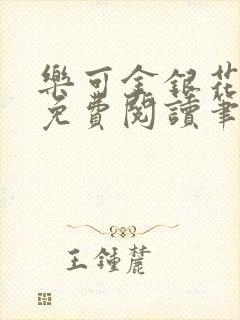 樂可金銀花
免費閱讀筆
王鍾麓